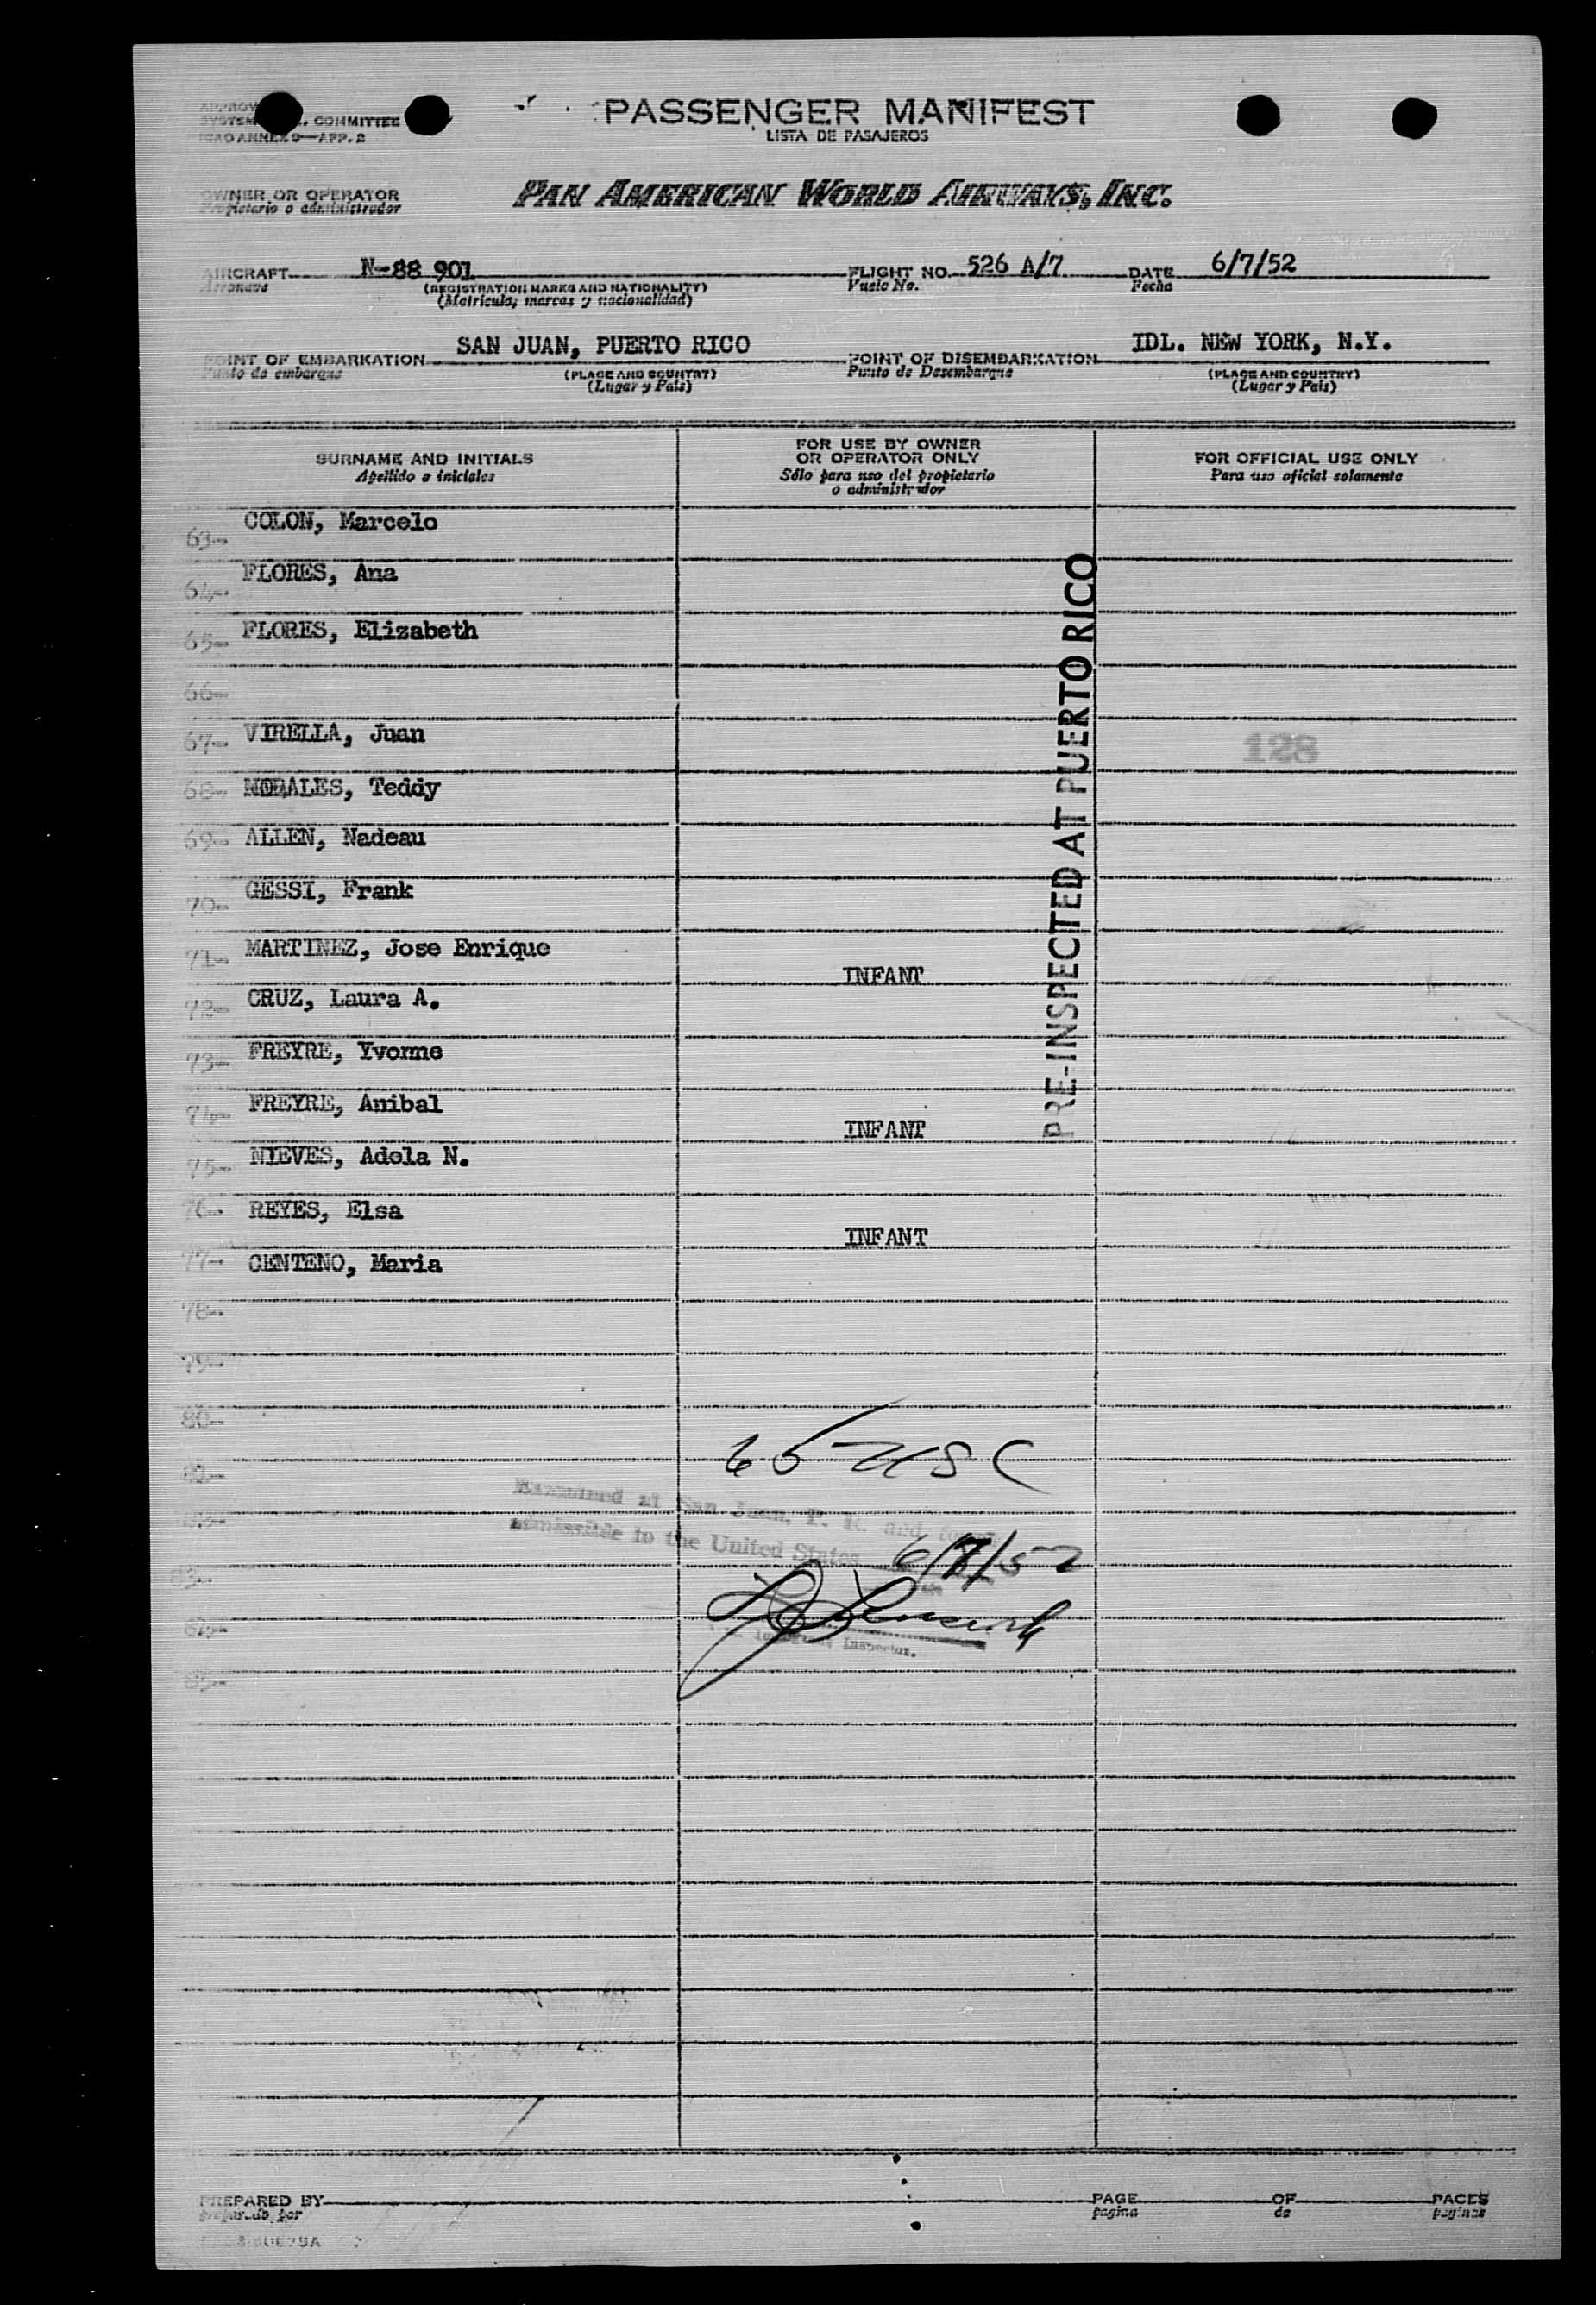 PASSENGER MANIFEST
LISTA DE PASAJEROS
COMMITTEE
ICAO ANNEX 9—APP. 2
OWNER OR OPERATOR
Propietario o administrador
PAN AMERICAN WORLD AIRWAYS, INC.
AIRCRAFT N-88 901 FLIGHT NO. 526 A/7 DATE 6/7/52
Aeronave (REGISTRATION MARKS AND NATIONALITY) Vuelo No. Fecha
(Matrícula; marcas y nacionalidad)
POINT OF EMBARKATION SAN JUAN, PUERTO RICO POINT OF DISEMBARKATION IDL. NEW YORK, N.Y.
Punto de embarque (PLACE AND COUNTRY) Punto de Desembarque (PLACE AND COUNTRY)
(Lugar y País) (Lugar y País)
SURNAME AND INITIALS
Apellido e iniciales
FOR USE BY OWNER
OR OPERATOR ONLY
Sólo para uso del propietario
o administrador
FOR OFFICIAL USE ONLY
Para uso oficial solamente
63- COLON, Marcelo
64- FLORES, Ana
65- FLORES, Elizabeth
66-
67- VIRELLA, Juan
128
68- MORALES, Teddy
69- ALLEN, Nadeau
70- GESSI, Frank
71- MARTINEZ, Jose Enrique
INFANT
72- CRUZ, Laura A.
73- FREYRE, Yvonne
74- FREYRE, Anibal
INFANT
75- NIEVES, Adela N.
76- REYES, Elsa
INFANT
77- CENTENO, Maria
PRE-INSPECTED AT PUERTO RICO
78-
79-
80-
65 USC
81-
Examined at San Juan, P. R. and found
82-
admissible to the United States
6/7/52
83-
84-
Inspector.
85-
PREPARED BY PAGE OF PAGES
preparado por pagina de paginas